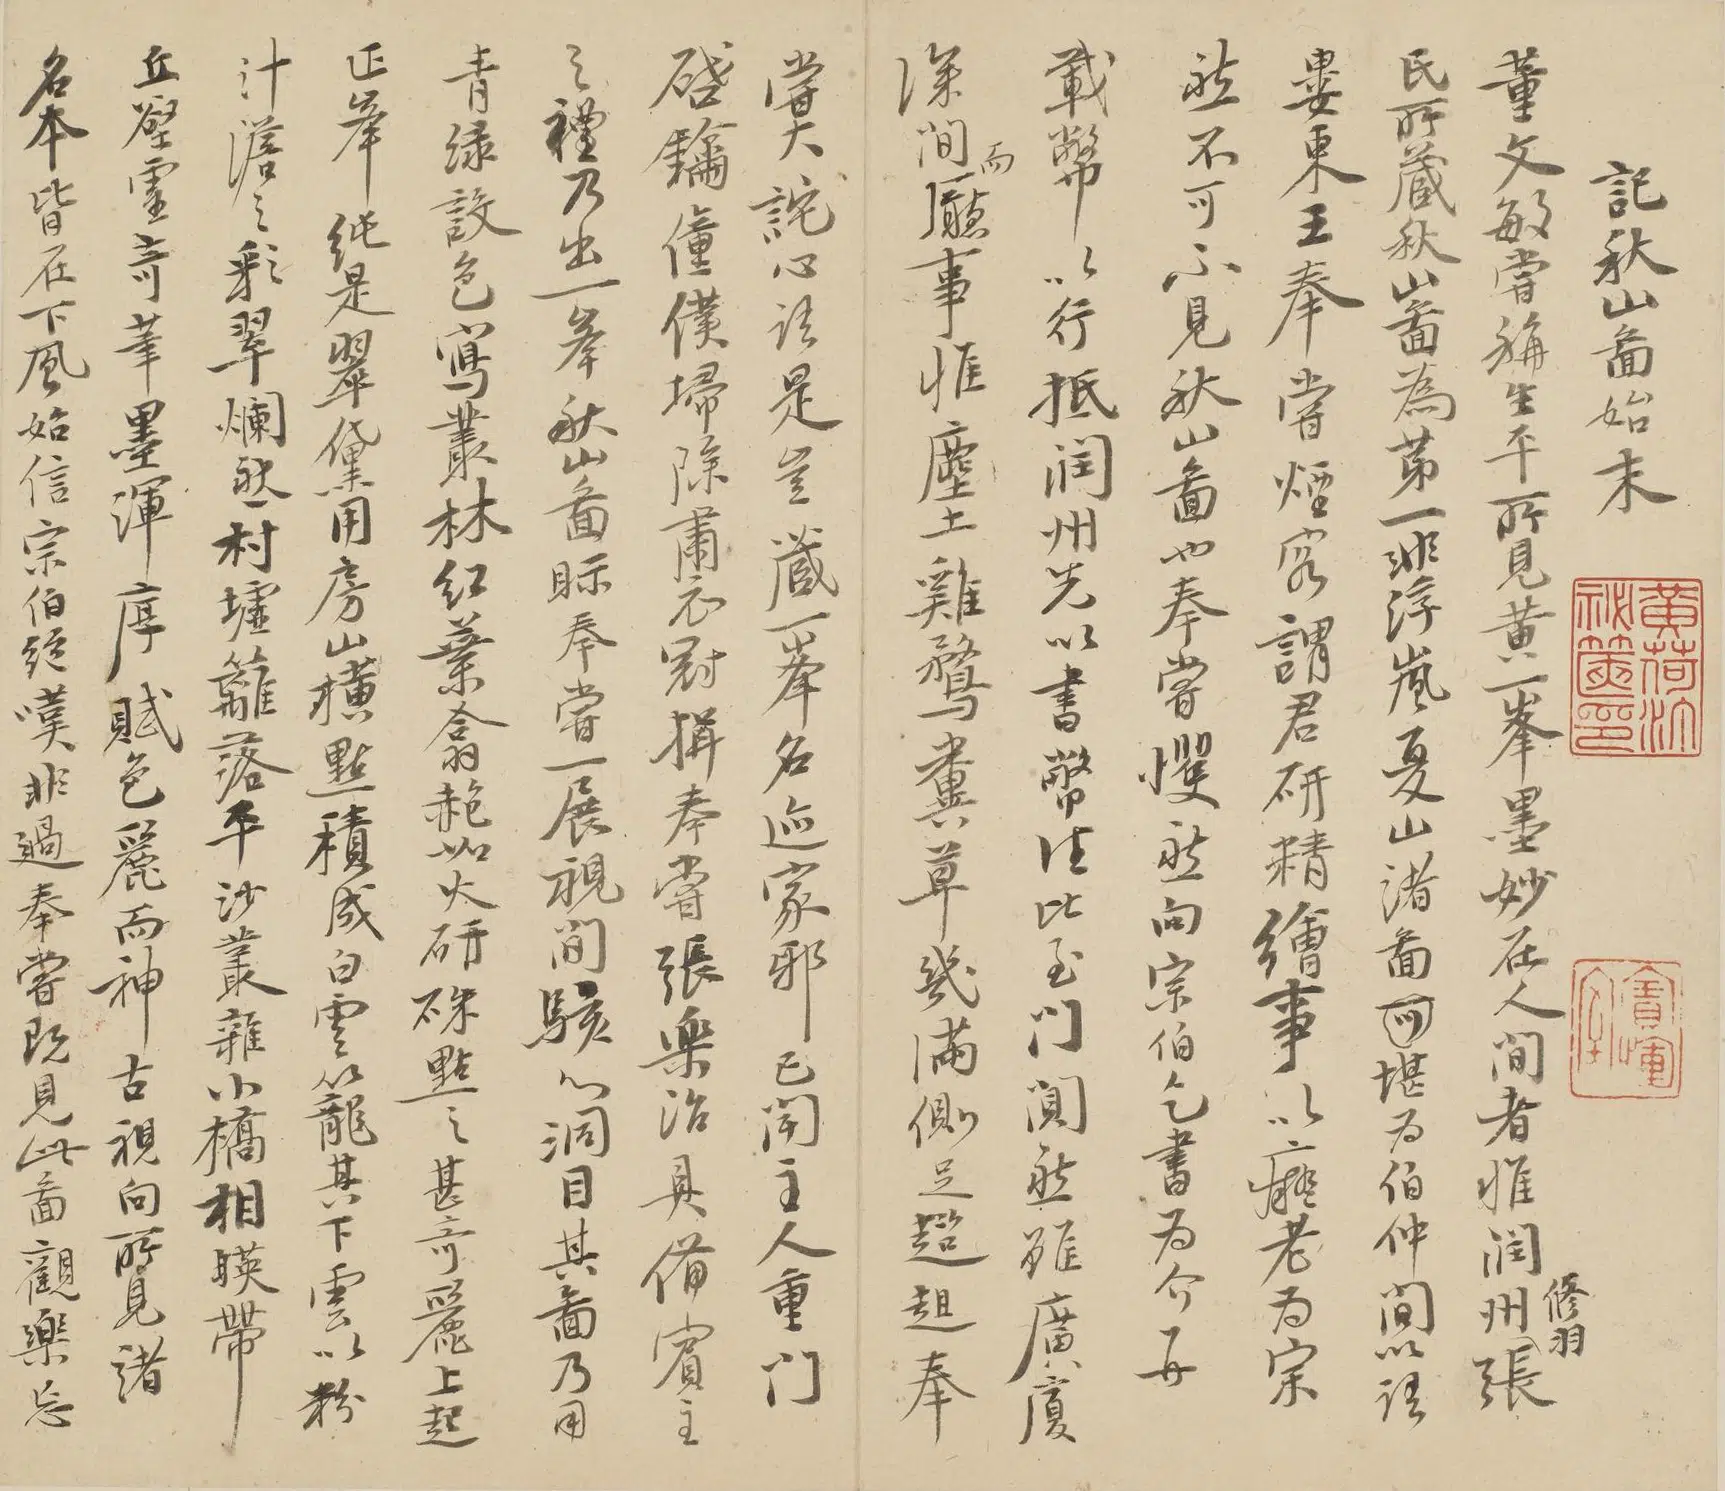 記秋山啚始末
董文敏嘗稱生平所見黃一峯墨妙在人間者惟潤州修羽張
氏所藏秋山啚為苐一非浮嵐夏山諸啚可堪為伯仲間以語
婁東王奉嘗煙客謂君研精繪事以癡老為宗
然不可不見秋山啚也奉嘗戄然向宗伯乞書為介并
載幣以行抵潤州先以書幣往比至門闃然雖廣廈
深間而廳事惟塵土雞鶩糞草幾滿側足趑趄奉
嘗大詫心語是豈藏一峯名迹家邪已聞主人重門
啟鑰僮僕掃除肅衣冠揖奉嘗張樂治具備賓主
之禮乃出一峯秋山啚眎奉嘗一展視間駭心洞目其啚乃用
青綠設色寫叢林紅葉翕赩如火研硃點之甚奇麗上起
正峯純是翠黛用房山橫點積成白雲籠其下雲以粉
汁澹之彩翠爛然村墟籬落平沙叢雜小橋相暎帶
丘壑靈奇筆墨渾厚賦色麗而神古視向所見諸
名本皆在下風始信宗伯絕嘆非過奉嘗既見此啚觀樂忘